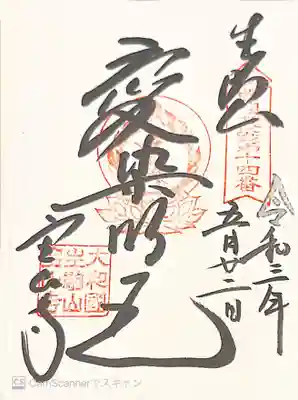 十四番
愛染明王
令和三年
五月廿二日
宝山寺
大和國
生駒山
CS CamScannerでスキャン